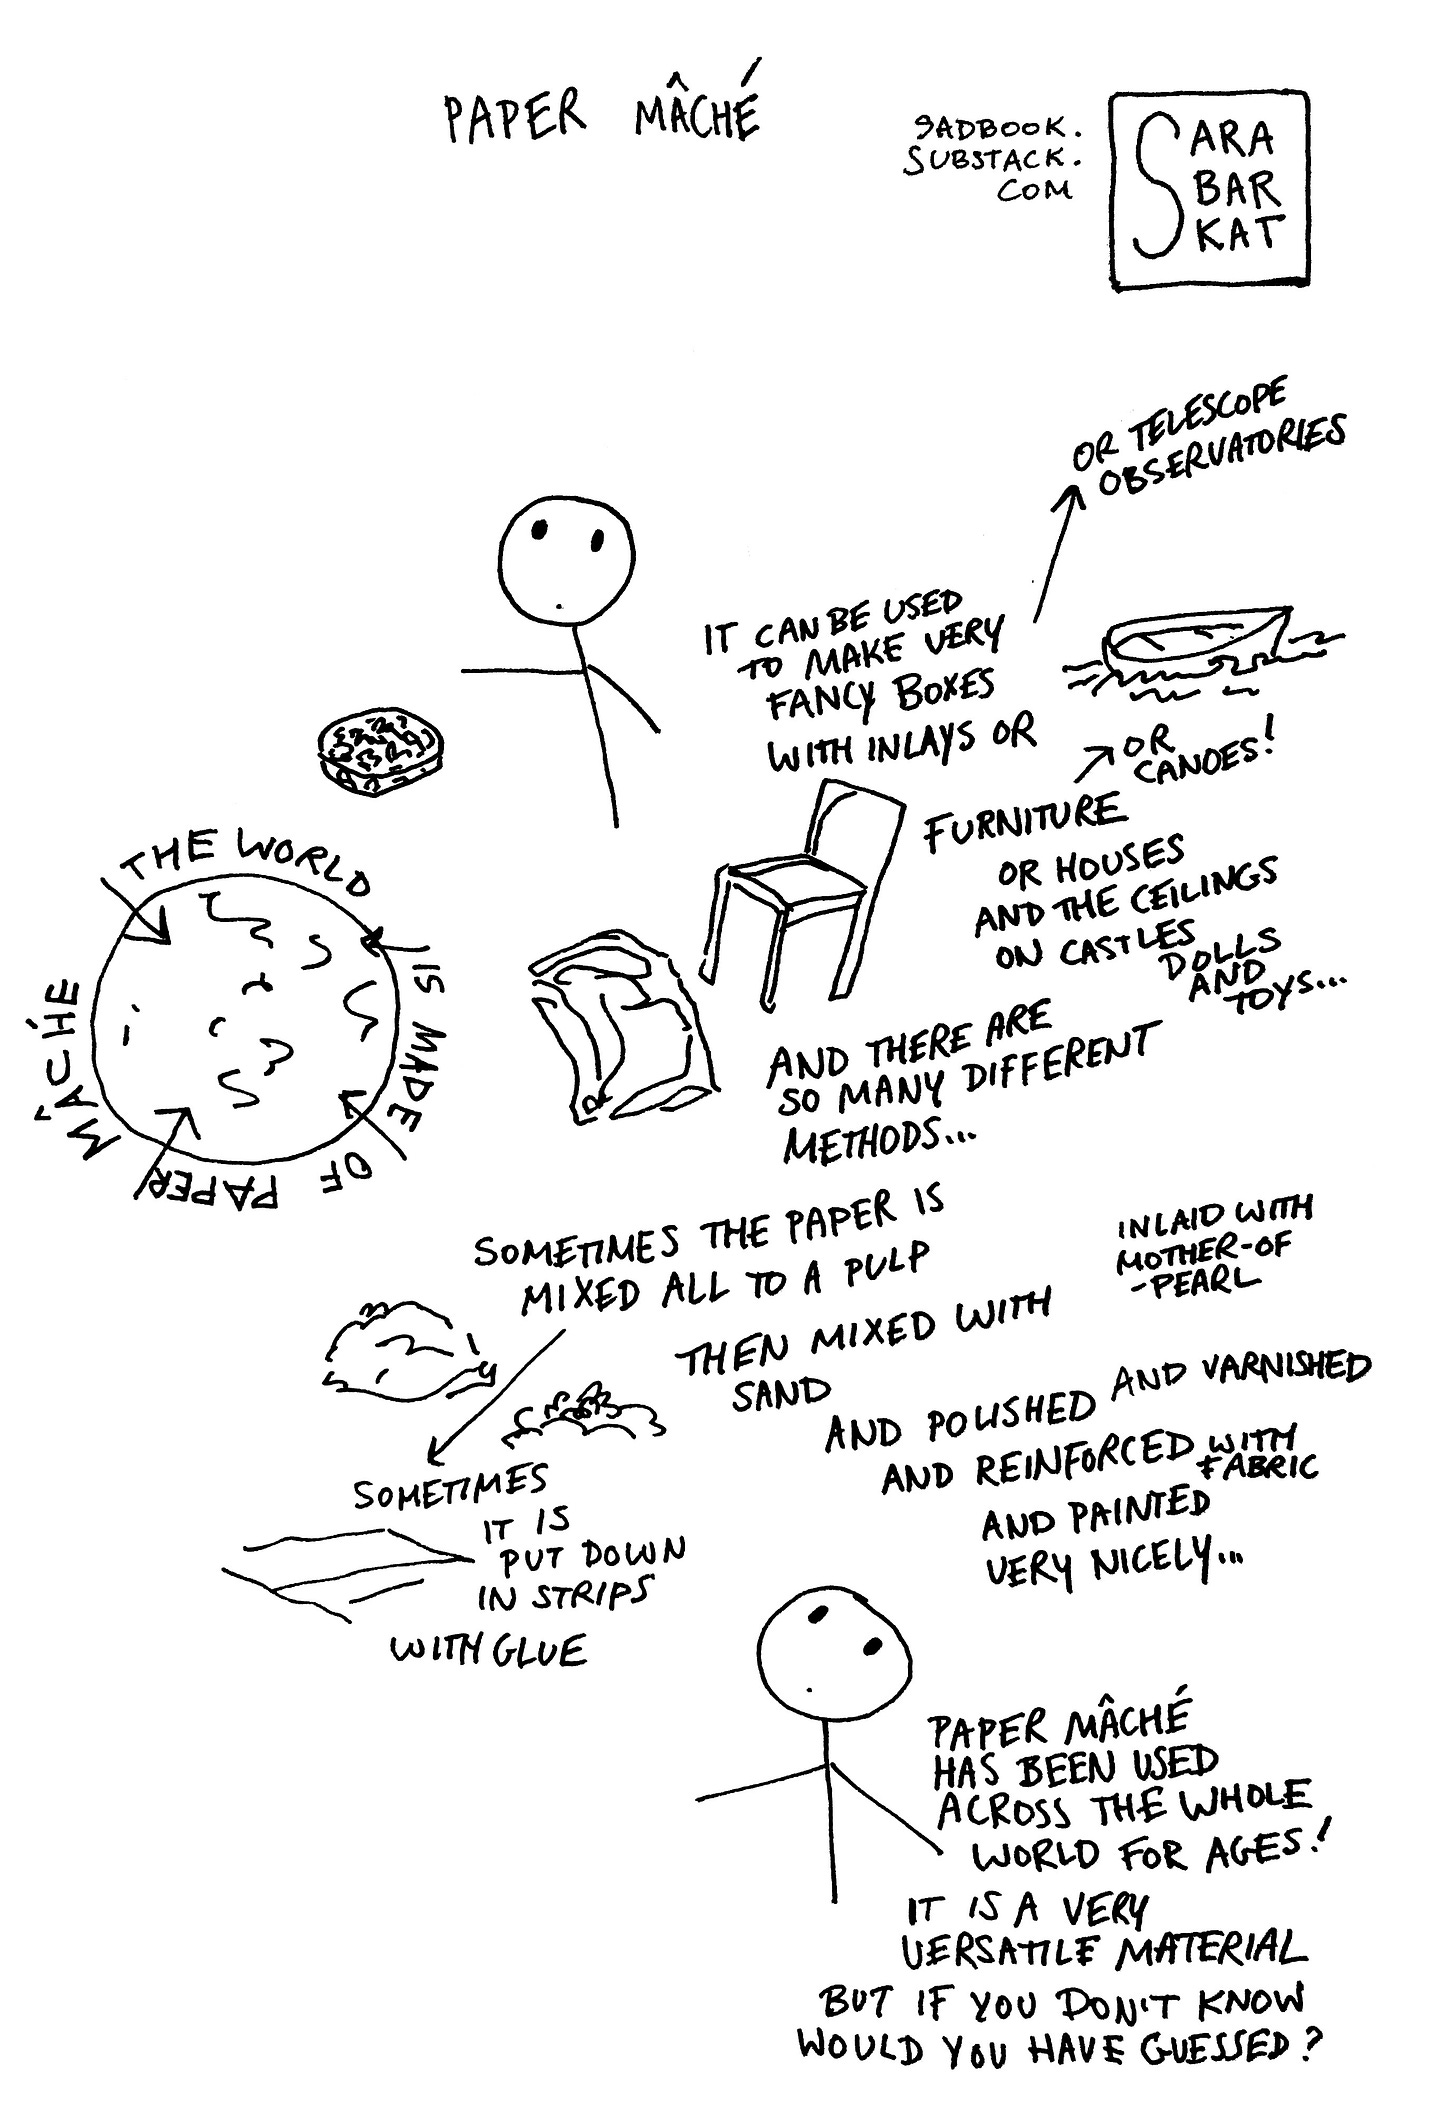 PAPER MÂCHÉ
SADBOOK.
SUBSTACK.
COM
SARA
BAR
KAT
OR TELESCOPE
OBSERVATORIES
IT CAN BE USED
TO MAKE VERY
FANCY BOXES
WITH INLAYS OR
OR
CANOES!
FURNITURE
OR HOUSES
AND THE CEILINGS
ON CASTLES
DOLLS
AND
TOYS...
THE WORLD
IS MADE
OF
PAPER
MÂCHÉ
AND THERE ARE
SO MANY DIFFERENT
METHODS...
SOMETIMES THE PAPER IS
MIXED ALL TO A PULP
THEN MIXED WITH
SAND
INLAID WITH
MOTHER-OF
-PEARL
AND POLISHED AND VARNISHED
AND REINFORCED WITH
FABRIC
AND PAINTED
VERY NICELY...
SOMETIMES
IT IS
PUT DOWN
IN STRIPS
WITH GLUE
PAPER MÂCHÉ
HAS BEEN USED
ACROSS THE WHOLE
WORLD FOR AGES!
IT IS A VERY
VERSATILE MATERIAL
BUT IF YOU DON'T KNOW
WOULD YOU HAVE GUESSED?